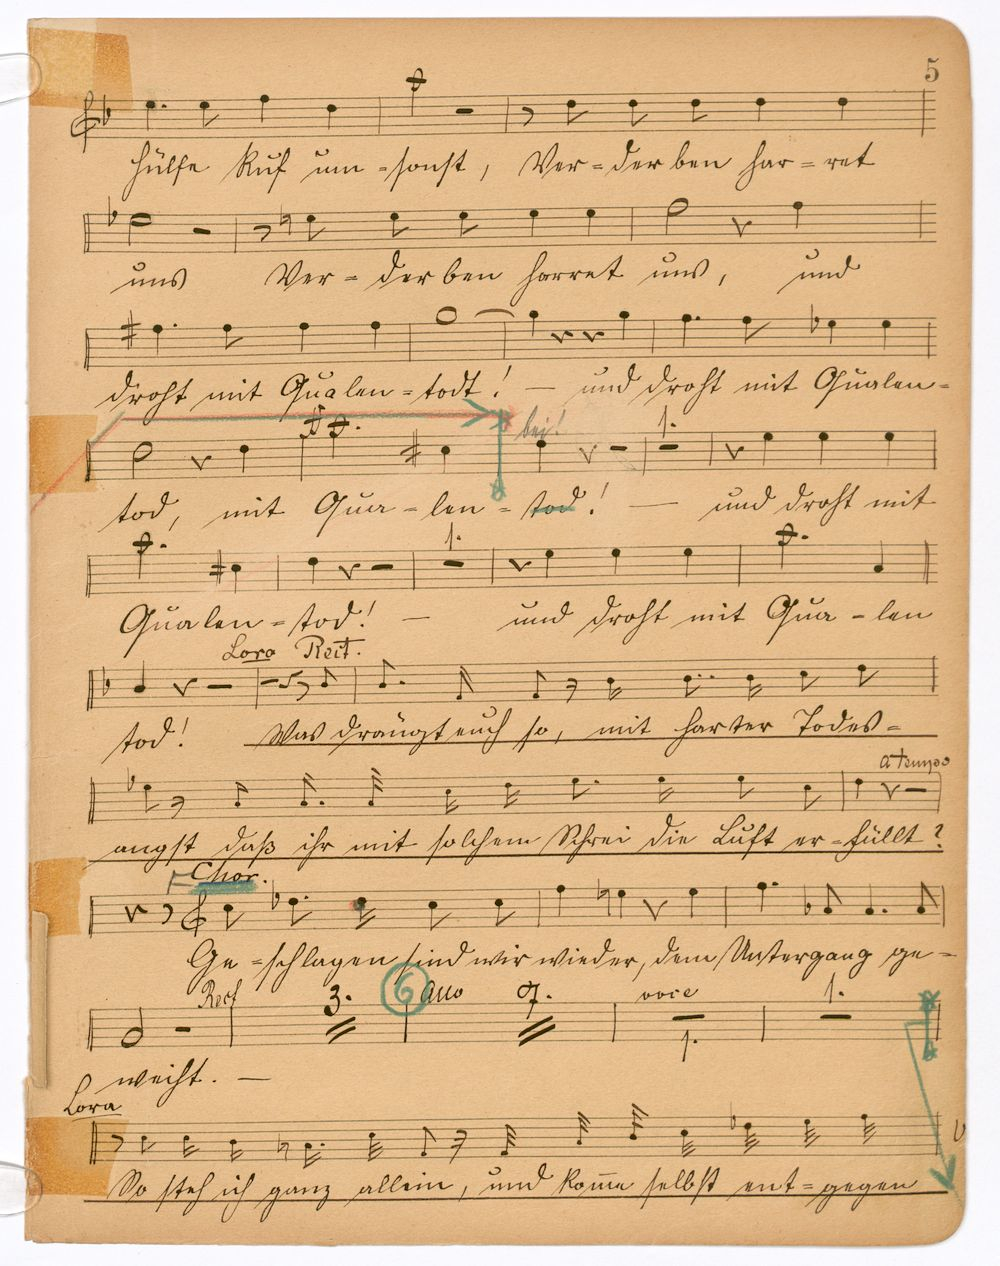 5
Hülfe Ruf um-sonst, Ver-derben har-ret
uns Ver-derben harret uns, und
droht mit Qualen-todt! — und droht mit Qualen-
bei!
1.
tod, mit Qua-len-tod! — und droht mit
1.
Qualen-tod! — und droht mit Qua-len
Lora Recit.
tod! Was drängt euch so, mit harter Todes-
a tempo
angst daß ihr mit solchem Schrei die Luft er-füllt?
Chor.
Ge-schlagen sind wir wieder, dem Untergang ge-
Recit 3. 6 Allo 7. voce 1.
1.
weiht. —
Lora
So steh ich ganz allein, und kom̅e selbst ent-gegen